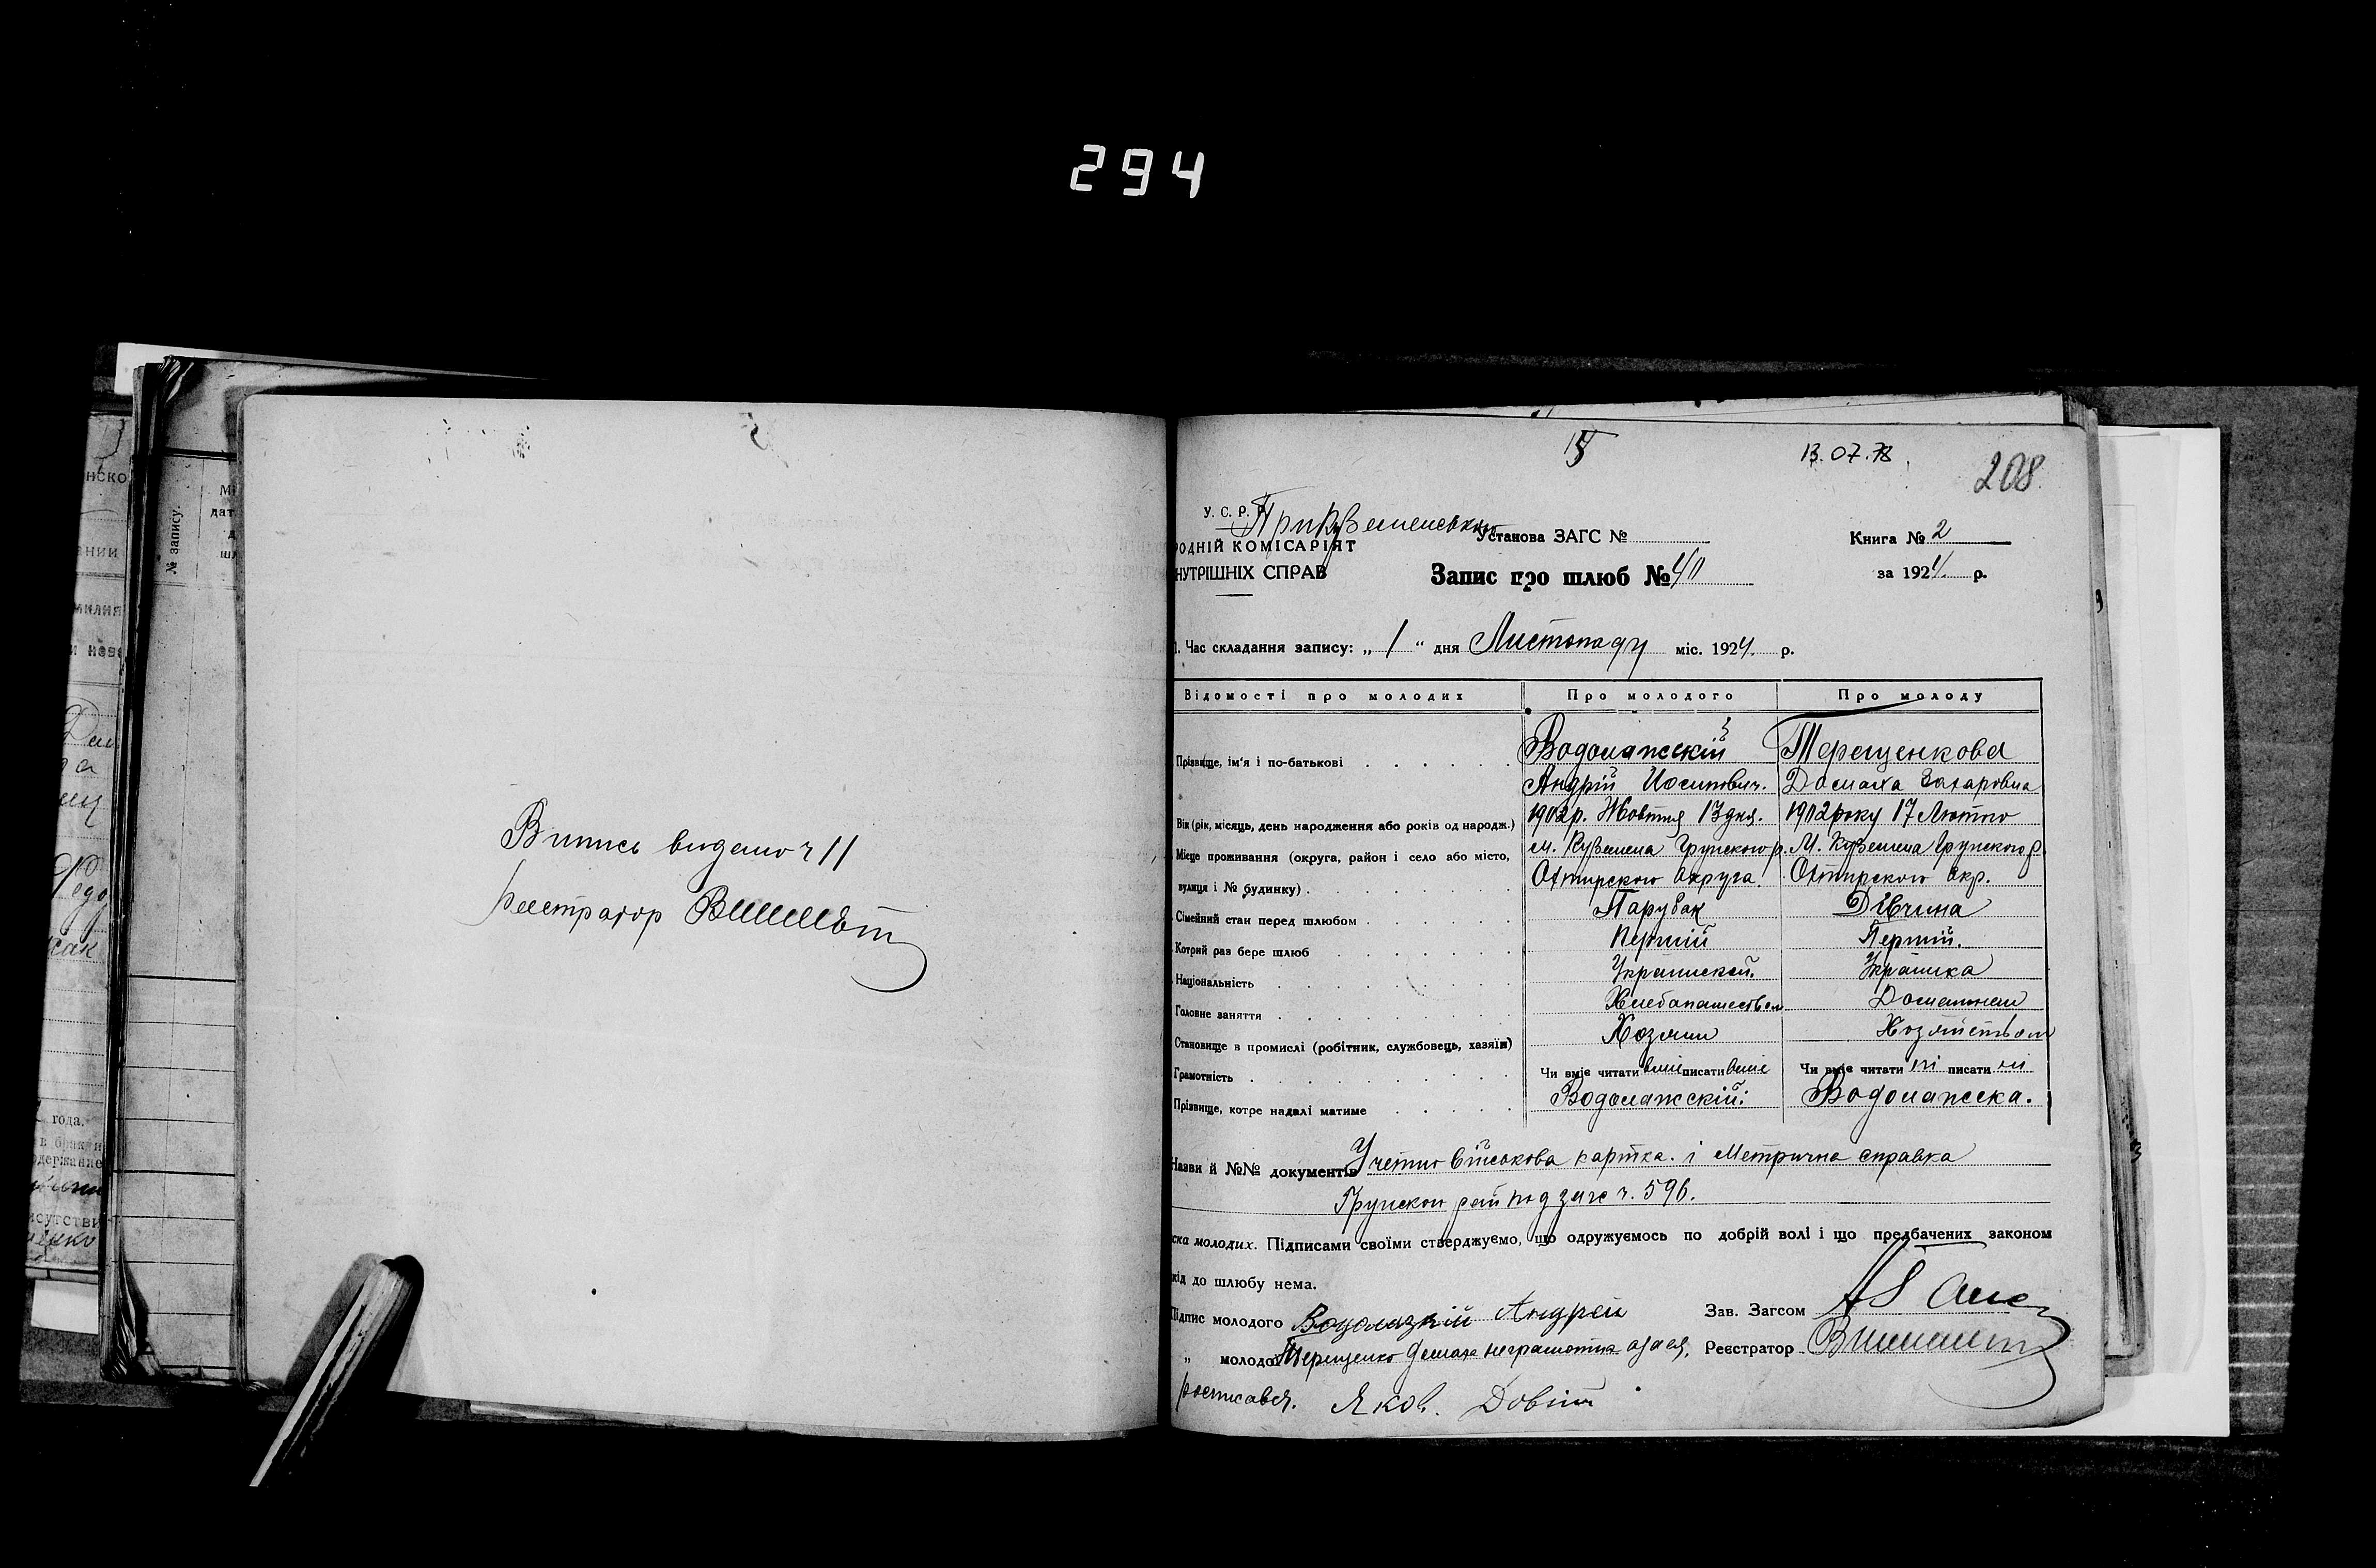 294
Випись видано ч 11
Реєстратор
13.07.78
208
У. С. Р. Р.
РОДНІЙ КОМІСАРІЯТ
НУТРІШНІХ СПРАВ
Установа ЗАГС №
Книга № 2
Запис про шлюб № 40
за 1924. р.
1. Час складання запису: „ 1 “ дня Листопаду міс. 1924. р.
Відомості про молодих Про молодого Про молоду
Прізвище, ім'я і по-батькові Водолажскій Терещенкова
Андрій Йосипович. Домаха Захаровна
Вік (рік, місяць, день народження або років од народж.) 1902р. Жовтня 13 дня. 1902 року 17 Лютого
Місце проживання (округа, район і село або місто, м. Куземена Грунского р. М. Куземена Грунского р.
вулиця і № будинку) Охтирского Округа. Охтирского Окр.
Сімейний стан перед шлюбом Парубак Дівчина
Котрий раз бере шлюб Первій Первій.
Національність Українской. Українка
Головне заняття Хлебапашеством Домашнем
Становище в промислі (робітник, службовець, хазяїн) Хозяин Хозяйством
Грамотність Чи вміє читати вміє писати вміє Чи вміє читати ні писати ні
Прізвище, котре надалі матиме Водолажскій. Водолажска.
Назви й №№ документів Учетно військова картка. і Метрична справка
Грунскои рай под загс ч. 596.
ска молодих. Підписами своїми стверджуємо, що одружуємось по добрій волі і що предбачених законом
кід до шлюбу нема.
Підпис молодого Водолазкій Андрей Зав. Загсом
„ молодої Терещенко Домаха неграмотна Реєстратор
росписавея. Яков.
№ запису.
нско
ании
милия
года.
в брак